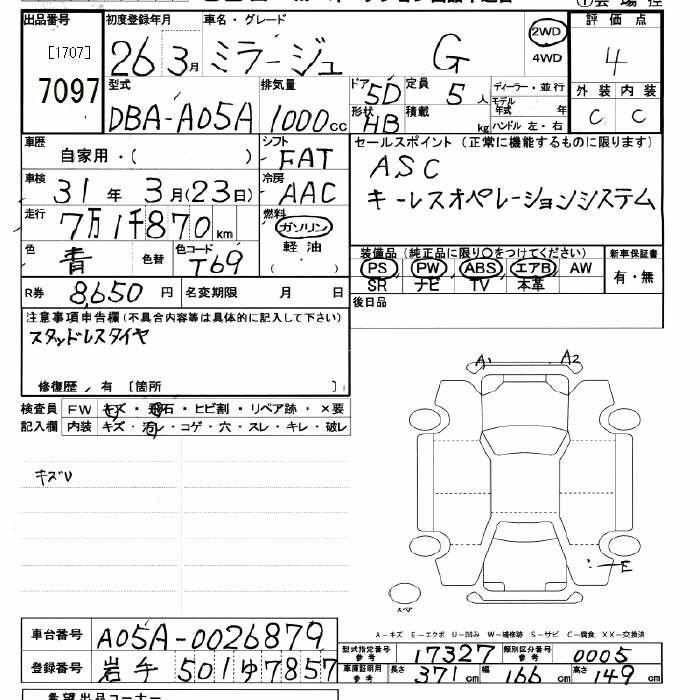 出品番号 [1707] 7097
初度登録年月 26 3月
車名・グレード ミラージュ G
2WD 4WD
評価点 4
外装 内装 C C
型式 DBA-A05A
排気量 1000cc
ドア 5D 形状 HB
定員 5人
積載 kg
ディーラー・並行
モデル年式 年
ハンドル 左・右
車歴 自家用・( )
シフト FAT
車検 31年 3月(23日)
冷房 AAC
走行 7万1千870km
燃料 ガソリン 軽油 ( )
色 青 色替 色コード T69
セールスポイント (正常に機能するものに限ります)
ASC
キーレスオペレーションシステム
装備品 (純正品に限り○をつけてください) 新車保証書
PS PW ABS エアB AW 有・無
SR ナビ TV 本革
R券 8,650円 名変期限 月 日
後日品
注意事項申告欄 (不具合内容等は具体的に記入して下さい)
スタッドレスタイヤ
修復歴 有 [箇所 ]
検査員 FW キズ・飛石・ヒビ割・リペア跡・×要
記入欄 内装 キズ・汚レ・コゲ・穴・スレ・キレ・破レ
キズU
A1 A2
E
スペア
A-キズ E-エクボ U-凹み W-補修跡 S-サビ C-腐食 XX-交換済
車台番号 A05A-0026879
登録番号 岩手 501ゆ7857
型式指定番号参考 17327 類別区分番号参考 0005
車庫証明用参考 長さ 371cm 幅 166cm 高さ 149cm
希望出品コーナー